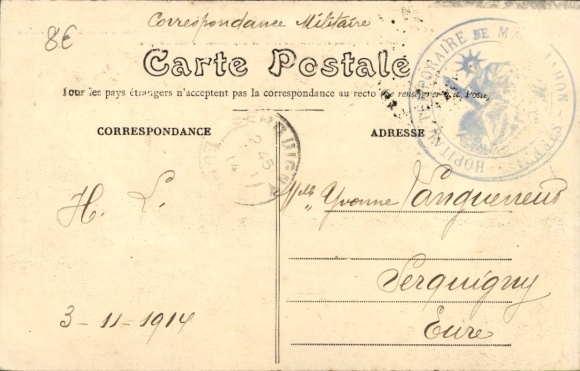 8€
Correspondance Militaire
Carte Postale
Tous les pays étrangers n'acceptent pas la correspondance au recto
CORRESPONDANCE
ADRESSE
HOPITAL TEMPORAIRE DE
2 45
H. L.
Mlle Yvonne
Serquigny
Eure
3-11-1914